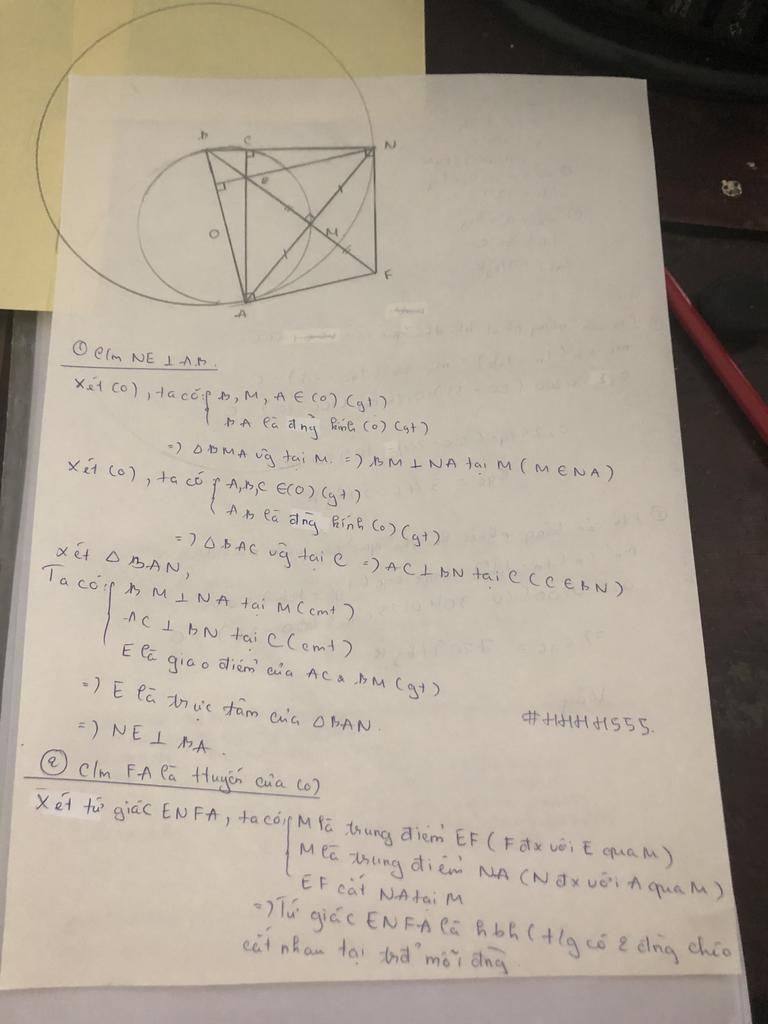 B C N
E
O M
F
A
① C/m NE ⊥ AB.
Xét (O), ta có { B, M, A ∈ (O) (gt)
BA là đng kính (O) (gt)
=) Δ BMA vg tại M. =) BM ⊥ NA tại M (M ∈ NA)
Xét (O), ta có { A, B, C ∈ (O) (gt)
AB là đng kính (O) (gt)
=) Δ BAC vg tại C =) AC ⊥ BN tại C (C ∈ BN)
Xét Δ BAN,
Ta có: { BM ⊥ NA tại M (cmt)
AC ⊥ BN tại C (cmt)
E là giao điểm của AC & BM (gt)
=) E là trực tâm của Δ BAN.
=) NE ⊥ BA.
#HHHH555.
② C/m FA là tiếp tuyến của (O)
Xét tứ giác ENFA, ta có: { M là trung điểm EF (F đx với E qua M)
M là trung điểm NA (N đx với A qua M)
EF cắt NA tại M
=) Tứ giác ENFA là hbh (t/g có 2 đng chéo
cắt nhau tại trđ mỗi đng